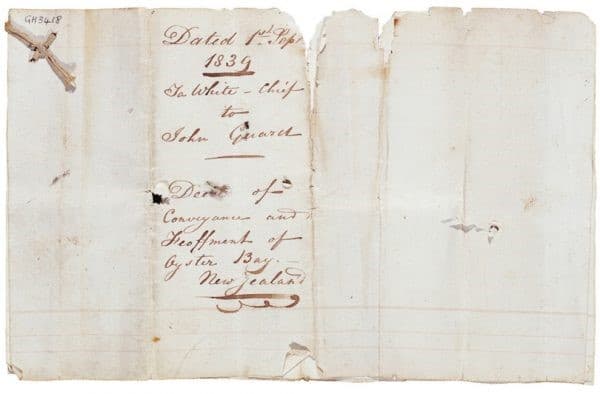 GH3418
Dated 1st Sep
1839
Ta White - Chief
to
John Guard
Deed of
Conveyance and
Feoffment of
Oyster Bay. -
New Zealand